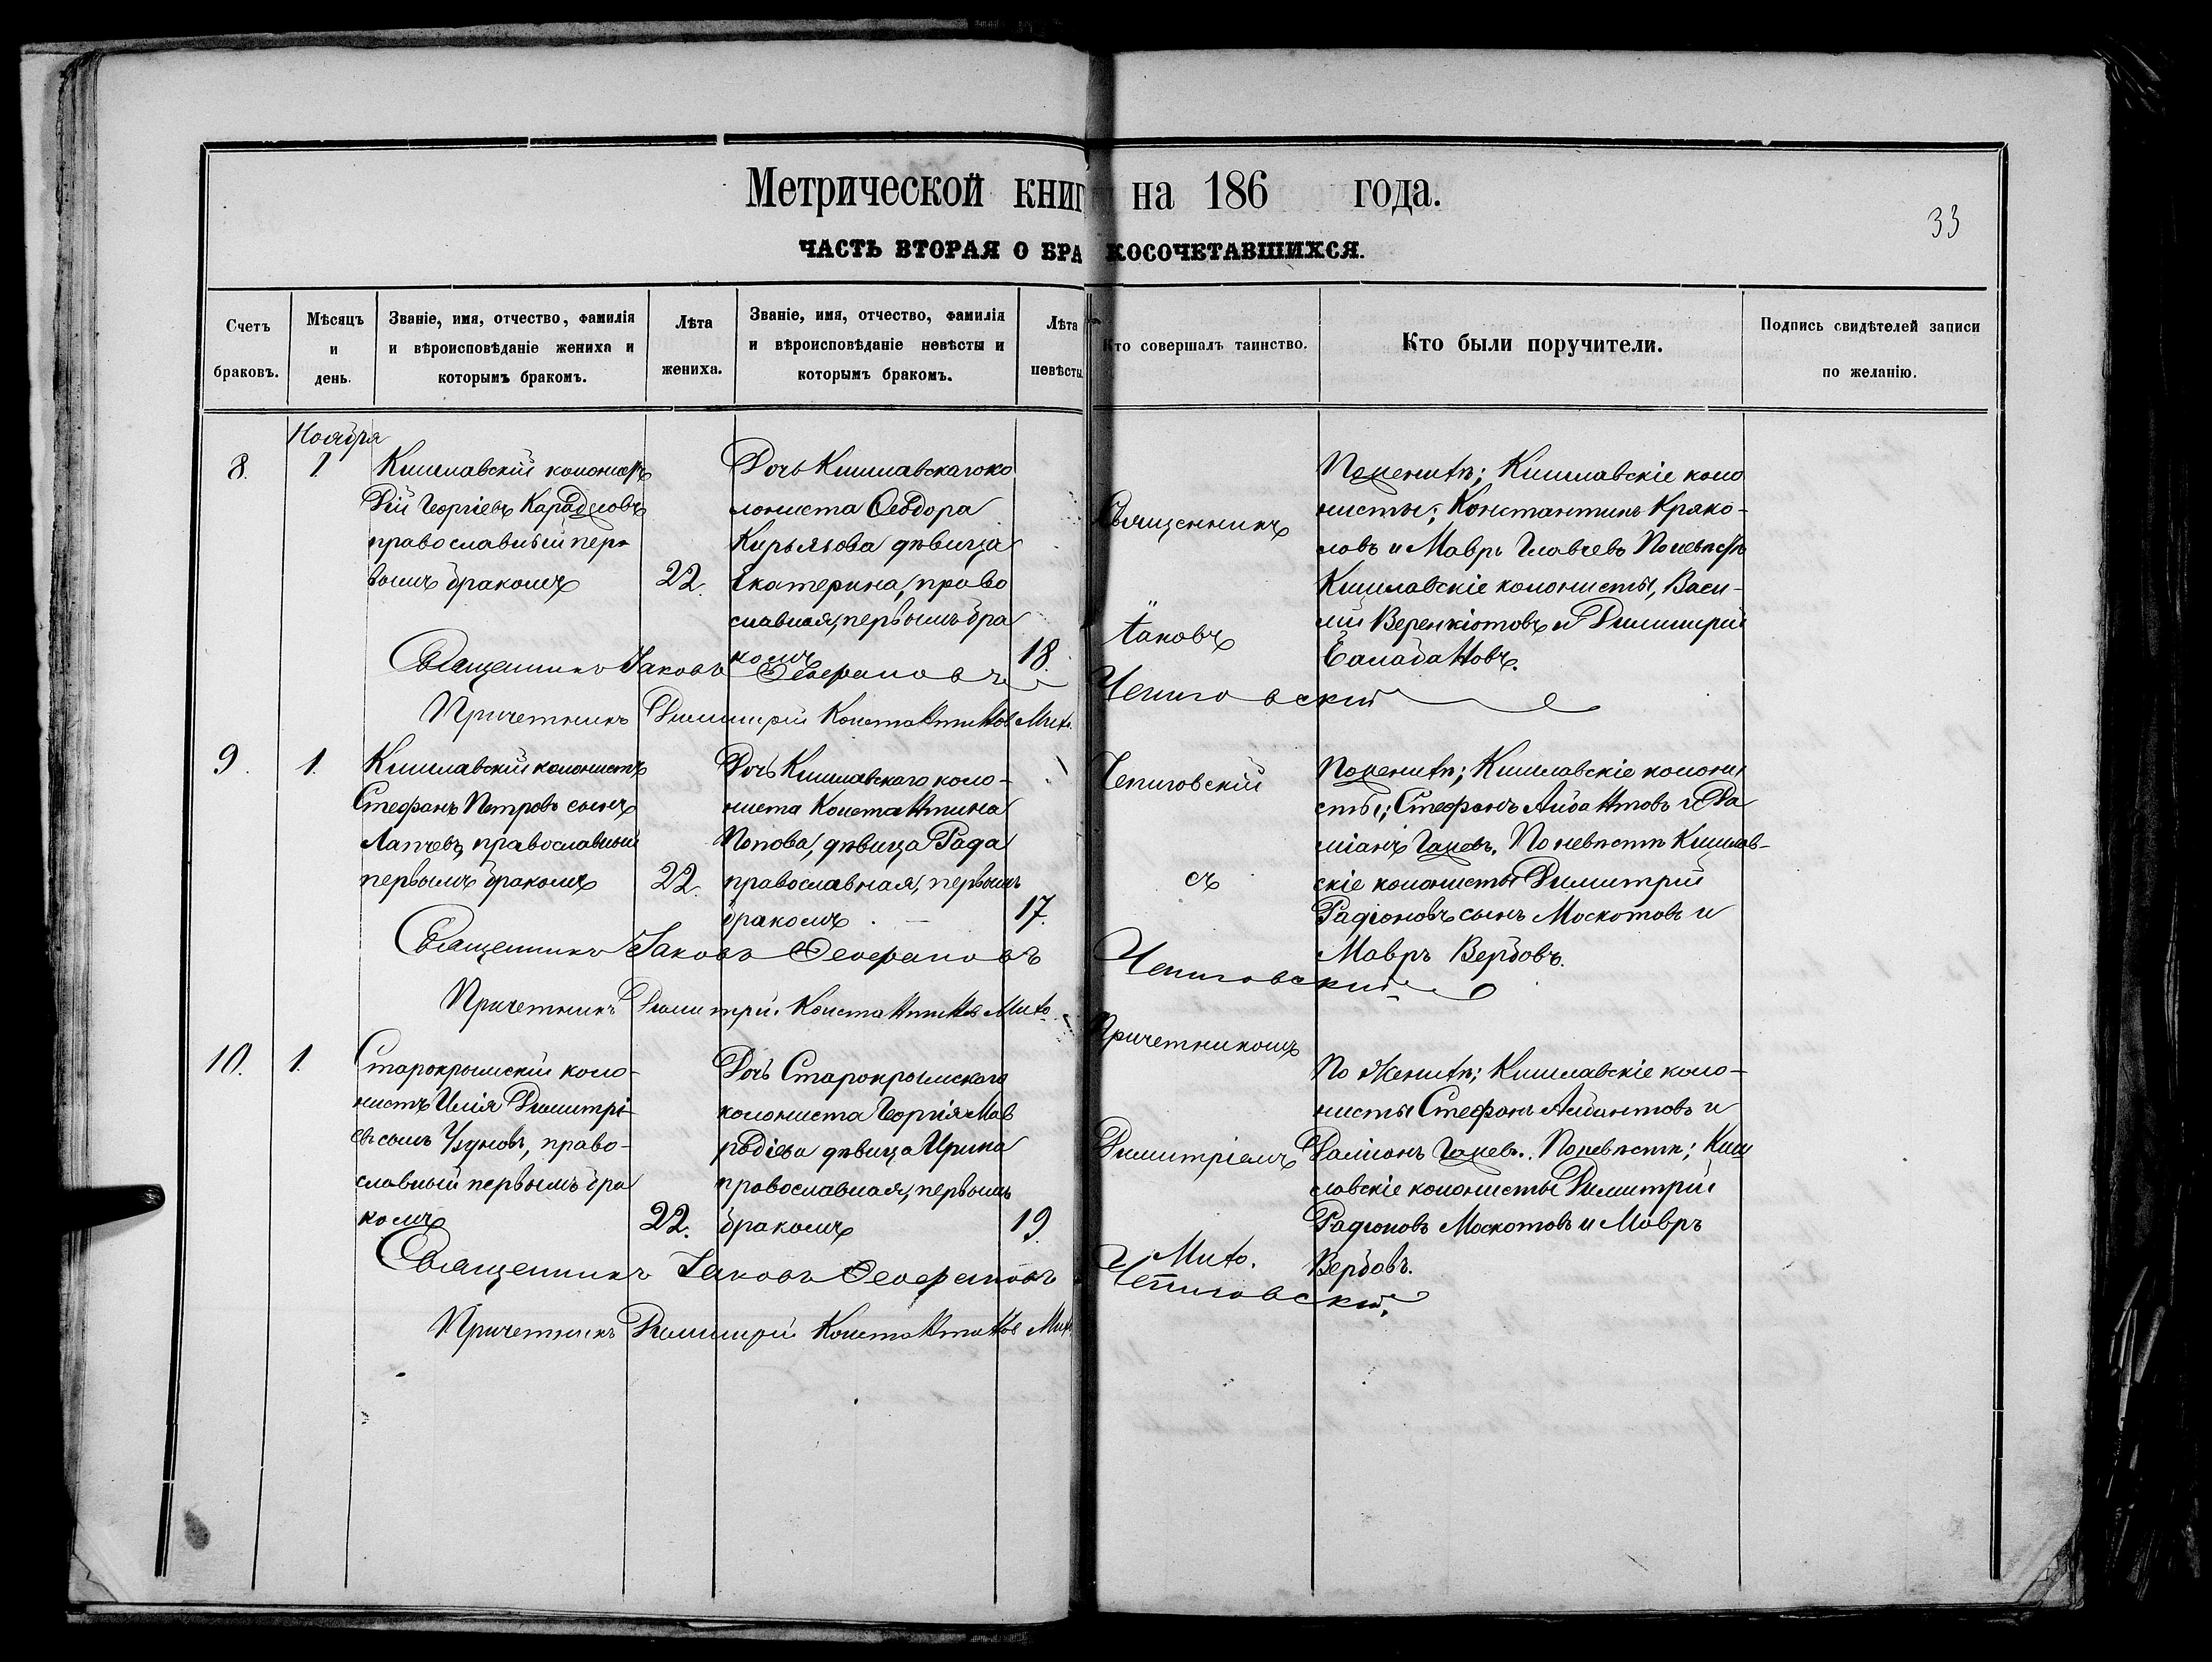 Метрической книг на 186 года.
33
ЧАСТЬ ВТОРАЯ О БРАКОСОЧЕТАВШИХСЯ.
Счетъ браковъ.
Мѣсяцъ и день.
Званіе, имя, отчество, фамилія и вѣроисповѣданіе жениха и которымъ бракомъ.
Лѣта жениха.
Званіе, имя, отчество, фамилія и вѣроисповѣданіе невѣсты и которымъ бракомъ.
Лѣта невѣсты
Кто совершалъ таинство.
Кто были поручители.
Подпись свидѣтелей записи по желанію.
Ноября
8. 1.
Кишлавскій колонистъ
Дій Георгіевъ
православный пер-
вымъ бракомъ
22.
Дочь Кишлавскаго ко
лониста Ѳеодора
Кирьякова дѣвица
Екатерина, право
славная, первымъ бра
комъ
18.
Священникъ
Іаковъ
Жениха; Кишлавскіе коло
нисты; Константинъ Кряко-
ловъ и Мавръ Главчевъ По невѣстѣ
Кишлавскіе колонисты, Васи-
лій и Димитрій
Балабановъ.
Священникъ Іаковъ Чепиговскій
Причетникъ Димитрій Константиновъ Мито.
9. 1.
Кишлавскій колонистъ
Стефанъ Петровъ сынъ
Лапчевъ, православный
первымъ бракомъ
22.
Дочь Кишлавскаго коло-
ниста Константина
Попова, дѣвица Рада
православная, первымъ
бракомъ
17.
Чепиговскій
съ
По женихѣ; Кишлавскіе колони
сты; Стефанъ Айвантовъ и Да
міанъ По невѣстѣ Кишлав-
скіе колонисты Димитрій
Радіоновъ сынъ Москотовъ и
Мавръ Вербовъ.
Священникъ Іаковъ Чепиговскій
Причетникъ Димитрій Константиновъ Мито
10. 1.
Старокрымскій коло-
нистъ Илія Димитрі-
евъ сынъ Узуновъ, право-
славный первымъ бра
комъ
22.
Дочь Старокрымскаго
колониста Георгія Мав
родіева дѣвица Ирина
православная, первымъ
бракомъ
19.
Причетникомъ
Димитріемъ
Мито.
По женихѣ; Кишлавскіе коло-
нисты Стефанъ Айвантовъ и
Даміанъ По невѣстѣ; Киш
лавскіе колонисты Димитрій
Радіоновъ Москотовъ и Мавръ
Вербовъ.
Священникъ Іаковъ Чепиговскій
Причетникъ Димитрій Константиновъ Мито